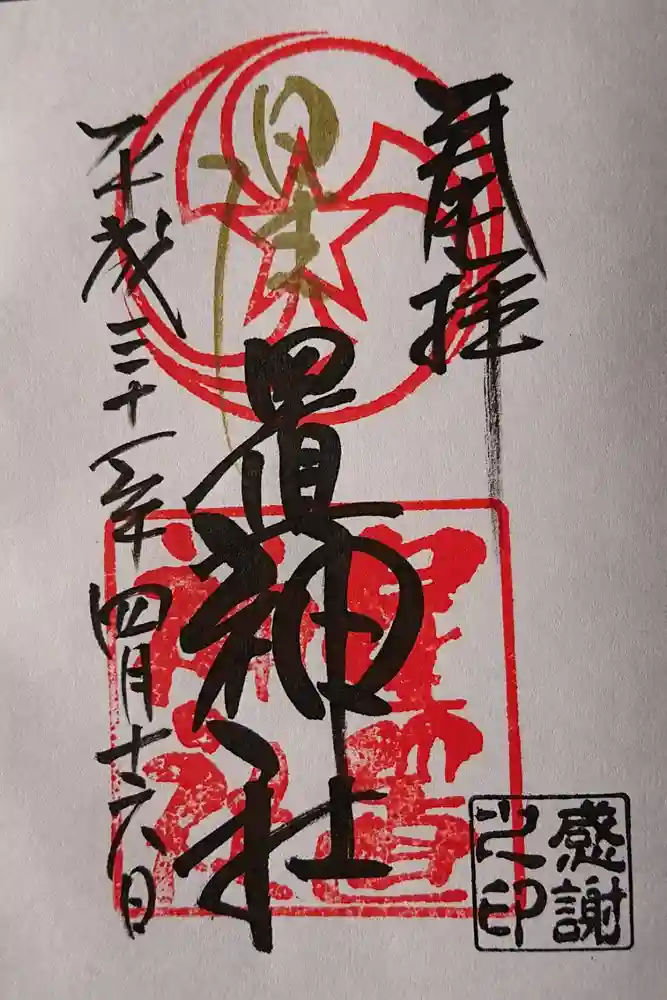 奉拝
星置神社
平成三十一年四月十六日
星置
神社
感謝
之印